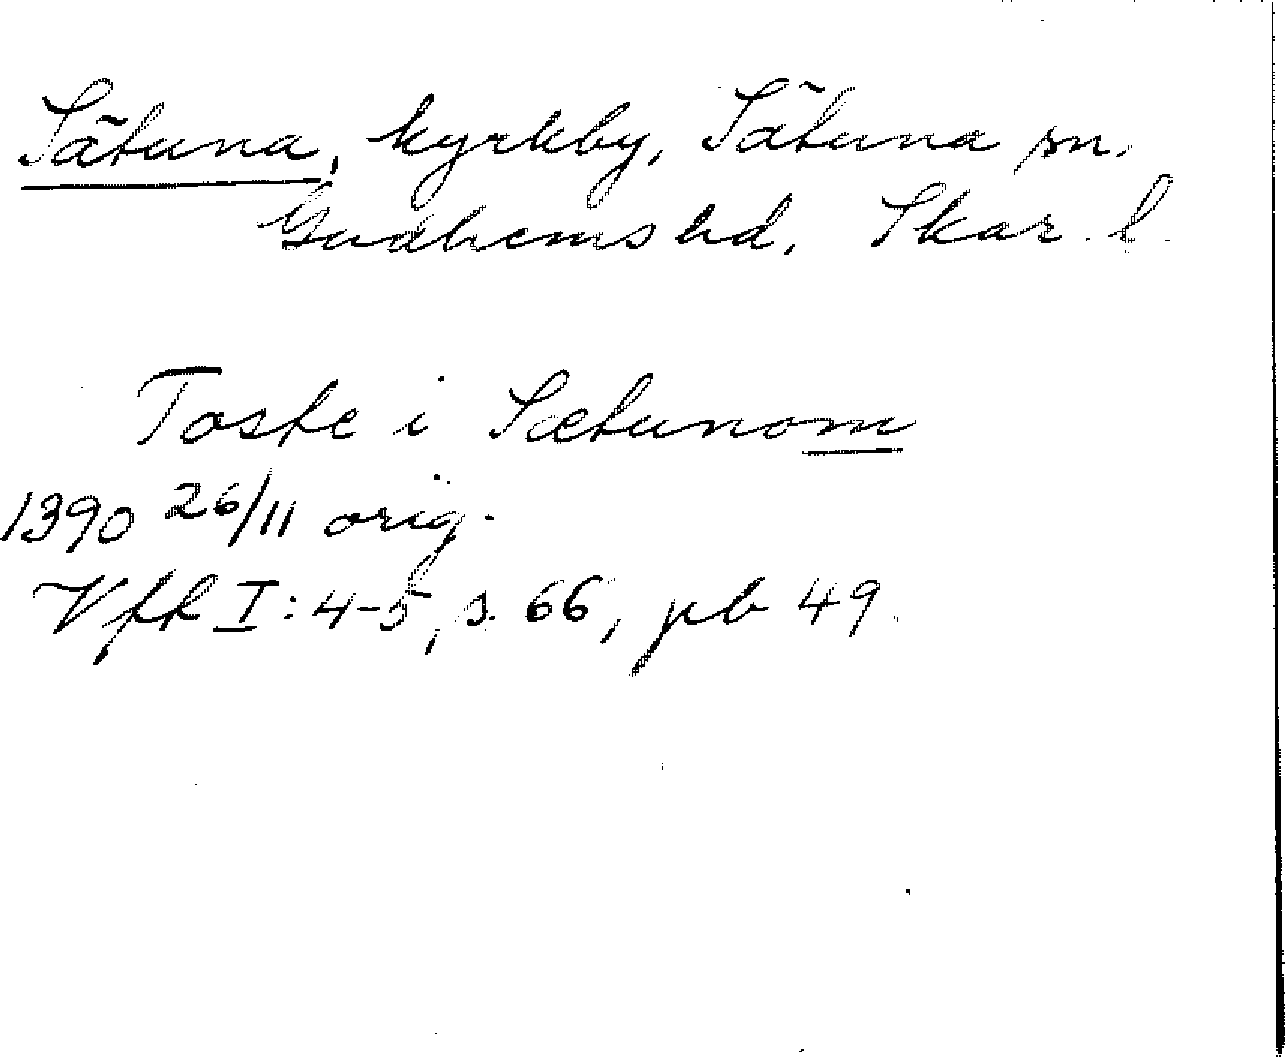 Sätuna, kyrkby, Sätuna sn.
Gudhems hd. Skar. l.
Toste i Sætunom
1390 26/11 orig.
Vff I:4-5, s. 66, pb 49.